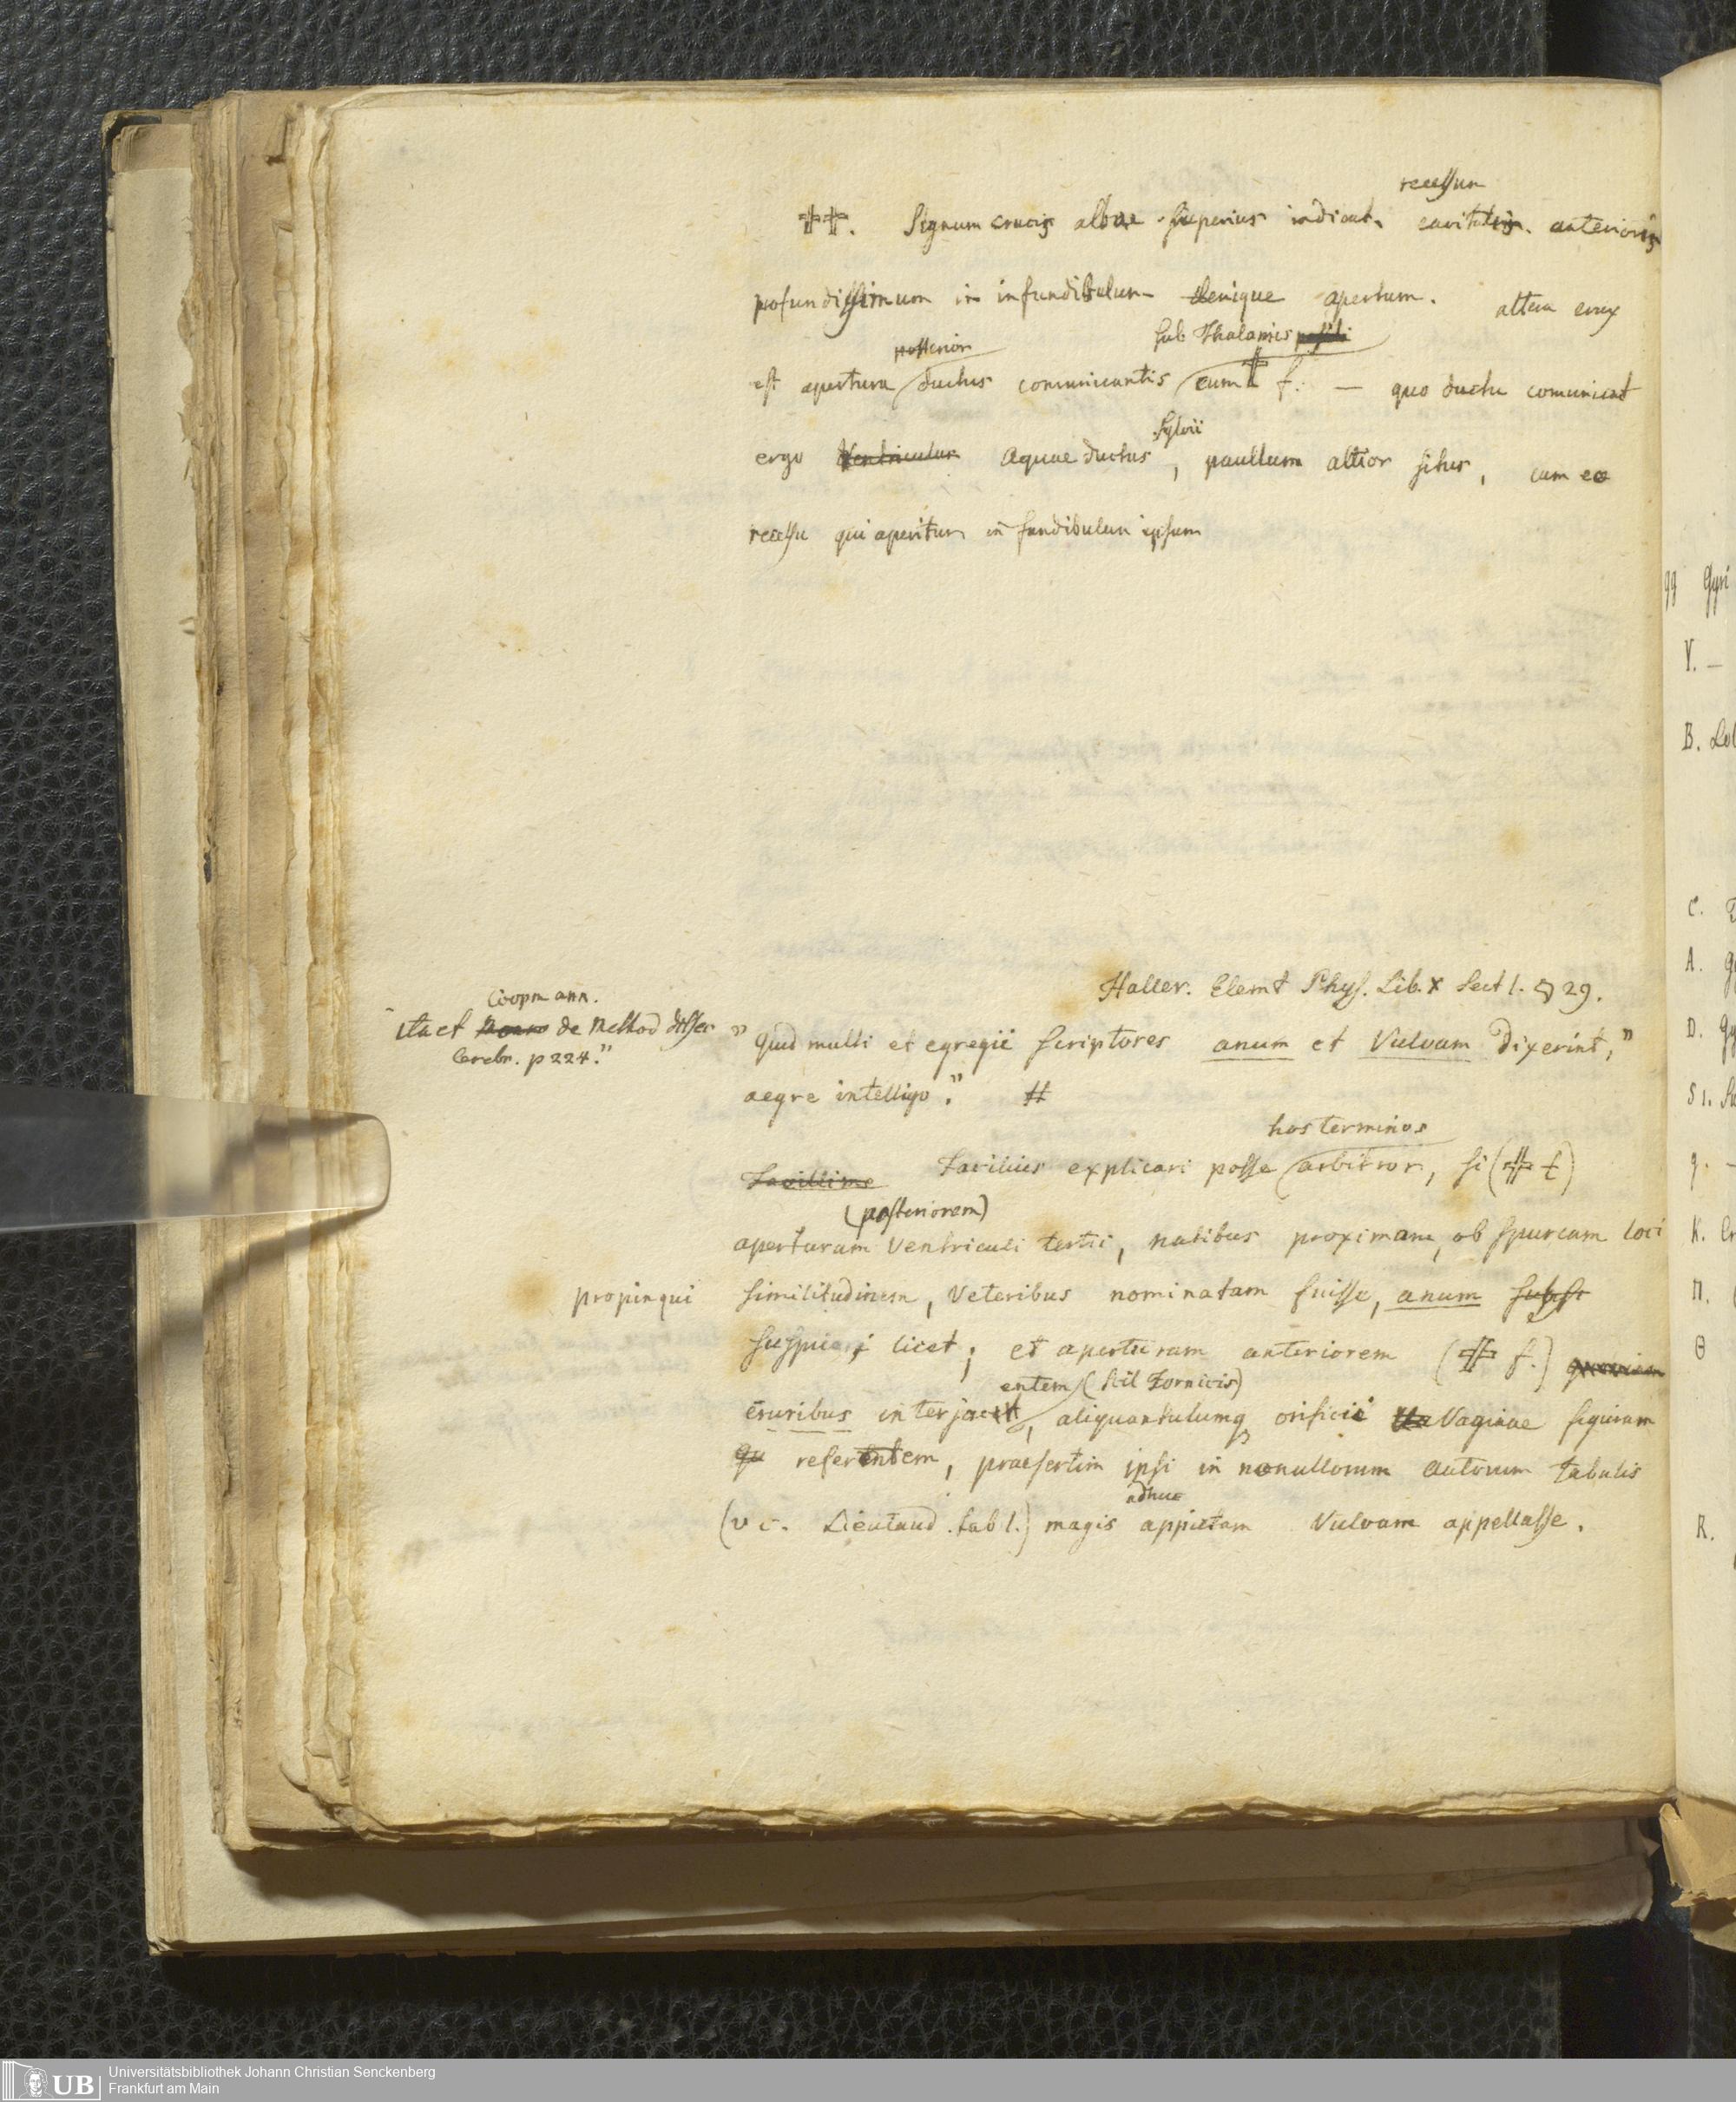 recessum
‡‡. Signum crucis albae superius indicat, cavitatis anterioris
profundissimum in infundibulum denique apertum. altera crux
posterior sub Thalamis positi
est apertura ductus communicantis cum ‡ f. — quo ductu comunicat
Sylvii
ergo Ventriculus Aquaeductus, paullum altior situs, cum eo
recessu qui aperitur in fundibulum ipsum
Haller. Elemt Phys. Lib. X Sect 1. § 29.
Coopmann.
ita et Monro de Method dissec
Cerebr. p 224."
" Quid multi et egregii Scriptores anum et Vulvam dixerint,"
aegre intelligo." #
hos terminos
Facillime Facilius explicari posse arbitror, si (‡ f)
(posteriorem)
aperturam Ventriculi tertii, natibus proximam, ob spurcam loci
propinqui similitudinem, Veteribus nominatam fuisse, anum
suspicari licet; et aperturam anteriorem (‡ f.)
entem (scil Fornicis)
cruribus interjac, aliquantulumq orificii Va Vaginae figuram
qu referentem, praesertim ipsi in nonullorum autorum tabulis
adhuc
(v c. Lieutaud. tab 1.) magis appictam Vulvam appellasse.
gg Gyri
Y. —
B. Lob
C.
A. g
D. Gy
S 1.
q. -
K.
Π.
Θ
R.
UB
Universitätsbibliothek Johann Christian Senckenberg
Frankfurt am Main